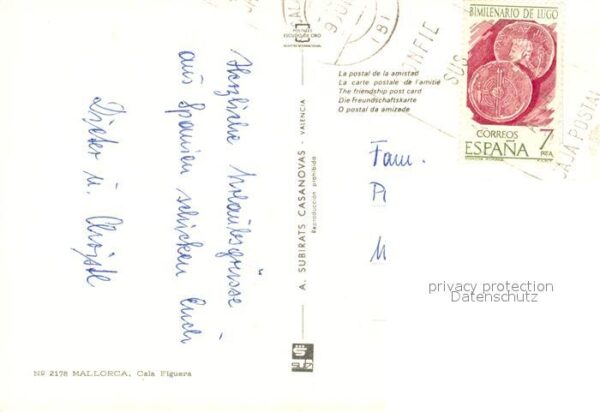 Herzliche Urlaubsgrüsse
aus Spanien schicken Euch
Dieter u. Christl
Nº 2178 MALLORCA, Cala Figuera
POSTALES
ESCUDO DE ORO
A. SUBIRATS CASANOVAS - VALENCIA
Reproducción prohibida
La postal de la amistad
La carte postale de l'amitié
The friendship post card
Die Freundschaftskarte
O postal da amizade
BIMILENARIO DE LUGO
CORREOS 7
ESPAÑA PTA
CONFIE
SUS
CAJA POSTAL
Fam.
privacy protection
Datenschutz